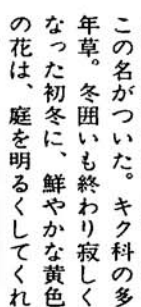 この名がついた。キク科の多
年草。冬囲いも終わり寂しく
なった初冬に、鮮やかな黄色
の花は、庭を明るくしてくれ